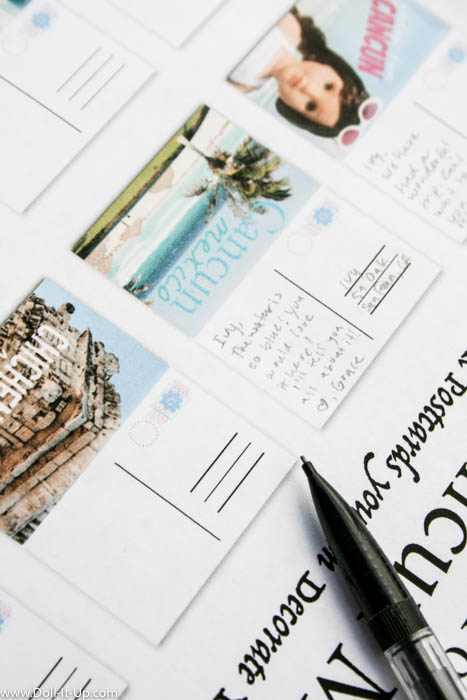 CANCUN
Ivy, we have
had a
wonderful
my can't
wait
Cancun
mexico
Ivy,
The water is
so blue! You
would love
it here!
I'll tell you
all about it!
Grace
Ivy
54 Oak
CHICHEN
Postcards you
Decorate
www.Doll-It-Up.com